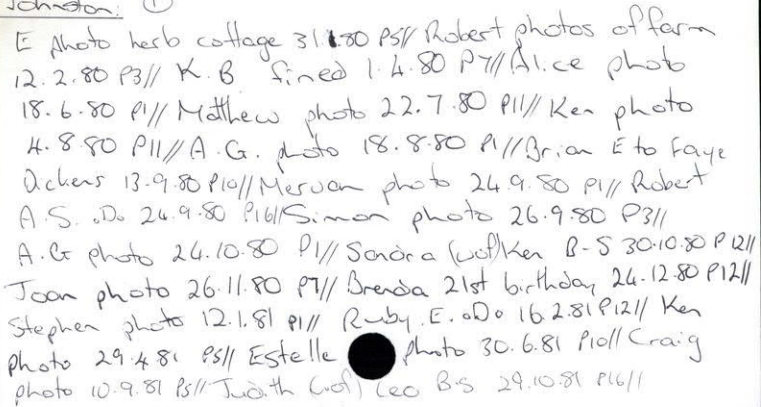 Johnston: ①
E photo herb cottage 31.1.80 P5// Robert photos of farm
12.2.80 P3// K.B fined 1.4.80 P7// Alice photo
18.6.80 P1// Matthew photo 22.7.80 P11// Ken photo
4.8.80 P11// A.G. photo 18.8.80 P1// Brian E to Faye
Dickens 13.9.80 P10// Mervan photo 24.9.80 P1// Robert
A.S. .Do 24.9.80 P16// Simon photo 26.9.80 P3//
A.G photo 24.10.80 P1// Sandra (wof) Ken B-S 30.10.80 P12//
Joan photo 26.11.80 P7// Brenda 21st birthday 24.12.80 P12//
Stephen photo 12.1.81 P1// Ruby .E. .Do 16.2.81 P12// Ken
photo 29.4.81 P5// Estelle photo 30.6.81 P10// Craig
photo 10.9.81 P5// Judith (wof) Leo B-S 29.10.81 P16//